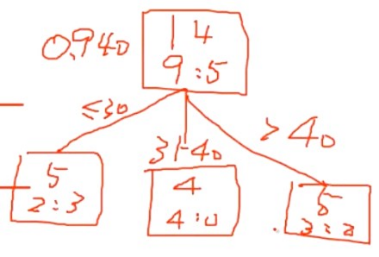 0.940
14
9:5
≤30
31-40
>40
5
2:3
4
4:0
5
3:2